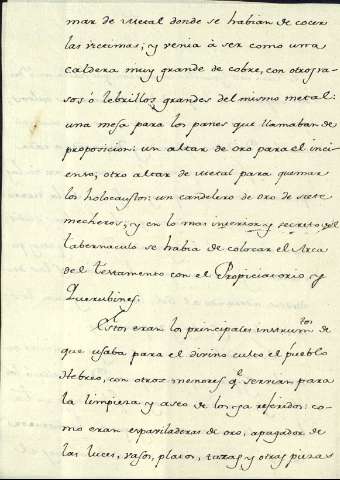 mar de Metal donde se habian de cocer
las victimas; y venia à ser como una
caldera muy grande de cobre, con otros va-
sos ó lebrillos grandes del mismo metal:
una mesa para los panes que llamaban de
proposicion: un altar de oro para el inci-
enso; otro altar de Metal para quemar
los holocaustos: un candelero de oro de siete
mecheros; y en lo mas interior y secreto del
tabernaculo se habia de colocar el Arca
del Testamento con el Propiciatorio y
Querubines.
Estos eran los principales instrum.tos de
que usaba para el divino culto el pueblo
Hebreo, con otros menores q.e servian para
la limpieza y aseo de los ya referidos: co-
mo eran espaviladeras de oro, apagador de
las luces, vasos, platos, tazas y otras piezas